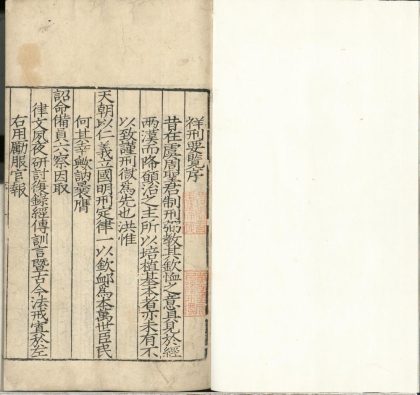 祥刑要覽序
昔在虞周聖君制刑弼教其欽恤之意具見於經
兩漢而降願治之主所以培植基本者亦未有不
以致謹刑獄為先也洪惟
天朝以仁義立國明刑定律一以欽卹為本萬世臣民
何其幸歟訥褁膺
詔命備員六察因取
律文夙夜研討復錄經傳訓言暨古今法戒寘於左
右用勵服官報